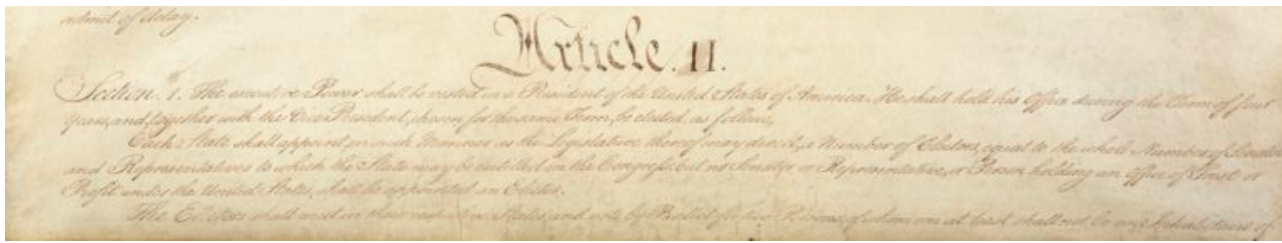 admit of delay.
Article. II.
Section. 1. The executive Power shall be vested in a President of the United States of America. He shall hold his Office during the Term of four
Years, and, together with the Vice President, chosen for the same Term, be elected, as follows
Each State shall appoint, in such Manner as the Legislature thereof may direct, a Number of Electors, equal to the whole Number of Senators
and Representatives to which the State may be entitled in the Congress: but no Senator or Representative, or Person holding an Office of Trust or
Profit under the United States, shall be appointed an Elector.
The Electors shall meet in their respective States, and vote by Ballot for two Persons, of whom one at least shall not be an Inhabitant of